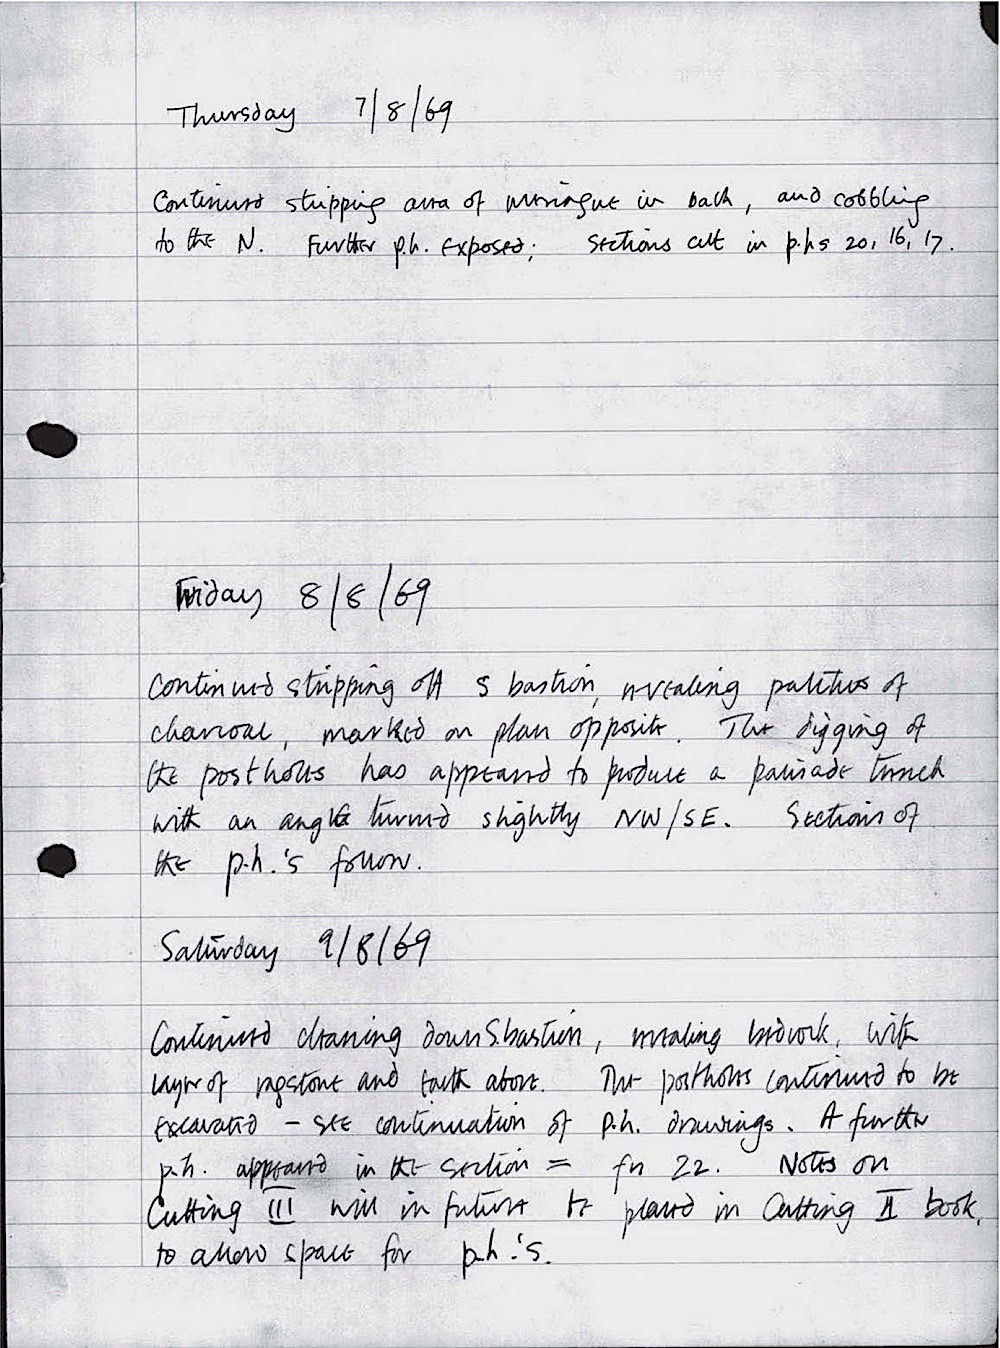 Thursday 7/8/69
Continued stripping area of meringue in bath, and cobbling
to the N. Further p.h. exposed; sections cut in p.hs 20, 16, 17.
Friday 8/8/69
Continued stripping off S bastion, revealing patches of
charcoal, marked on plan opposite. The digging of
the postholes has appeared to produce a palisade trench
with an angle turned slightly NW/SE. Sections of
the p.h.'s follow.
Saturday 9/8/69
Continued cleaning down S. bastion, revealing bedrock, with
layer of ragstone and earth above. The postholes continued to be
excavated – see continuation of p.h. drawings. A further
p.h. appeared in the section = fn 22. Notes on
Cutting III will in future be placed in Cutting II book,
to allow space for p.h.'s.